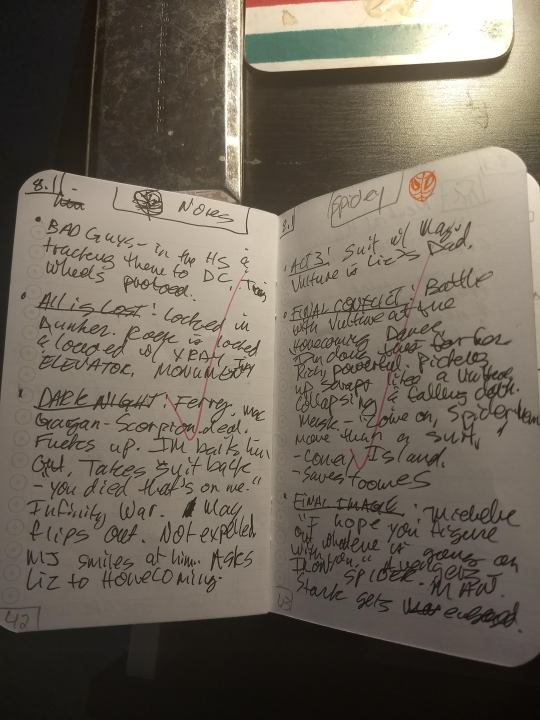 8.1
Notes
• BAD Guys - in the HS &
tracking them to DC.
wheels
• All is Lost: Locked in
Bunker. Rock is locked
& loaded w/ XRAY
ELEVATOR. MONUMENT
• DARK NIGHT: Ferry. Mac
Gargan - Scorpion
Fucks up. IM baits him
out. Takes suit back
- "you died that's on me."
Infinity War. May
flips out. Not expelled
MJ smiles at him. Asks
Liz to Homecoming.
42
8.1
Spidey
• ACT 3: Suit w/
Vulture is Liz's Dad.
• FINAL CONFLICT: Battle
with Vulture at the
Homecoming Dance.
powerful.
up scraps like a Vulture
collapsing & falling
Mask - "Come on, Spiderman
more than a suit."
- Coney Island.
- Saves Toomes
• FINAL IMAGE: Michelle
"I hope you figure
out whatever is going on
with you." Avengers
SPIDER MAN.
Stark gets engaged.
43